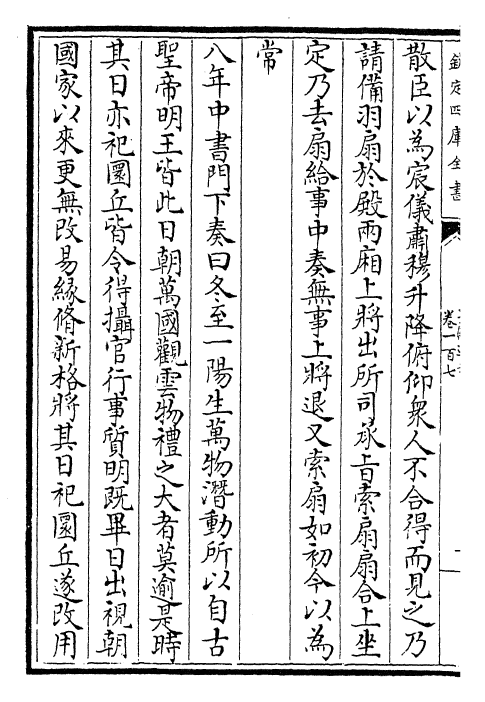 欽定四庫全書
卷一百七
散臣以為宸儀肅穆升降俯仰衆人不合得而見之乃
請備羽扇於殿兩廂上將出所司承旨索扇扇合上坐
定乃去扇給事中奏無事上將退又索扇如初今以為
常
八年中書門下奏曰冬至一陽生萬物潛動所以自古
聖帝明王皆此日朝萬國觀雲物禮之大者莫逾是時
其日亦祀圜丘皆令得攝官行事質明既畢日出視朝
國家以來更無改易緣脩新格將其日祀圜丘遂改用